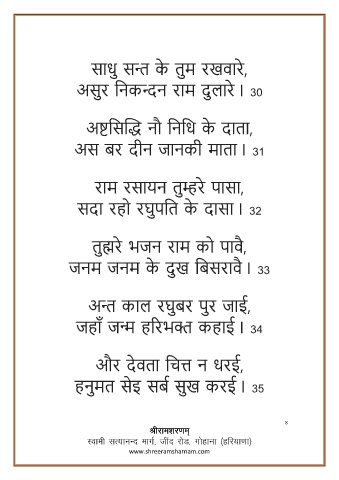 साधु सन्त के तुम रखवारे,
असुर निकन्दन राम दुलारे। 30
अष्टसिद्धि नौ निधि के दाता,
अस बर दीन जानकी माता। 31
राम रसायन तुम्हरे पासा,
सदा रहो रघुपति के दासा। 32
तुह्मरे भजन राम को पावै,
जनम जनम के दुख बिसरावै। 33
अन्त काल रघुबर पुर जाई,
जहाँ जन्म हरिभक्त कहाई। 34
और देवता चित्त न धरई,
हनुमत सेइ सर्ब सुख करई। 35
8
श्रीरामशरणम्
स्वामी सत्यानन्द मार्ग, जींद रोड, गोहाना (हरियाणा)
www.shreeramsharnam.com